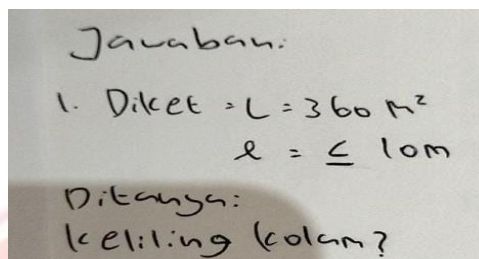 Jawaban:
1. Diket = L = 360 m²
l = ≤ 10m
Ditanya:
Keliling kolam?